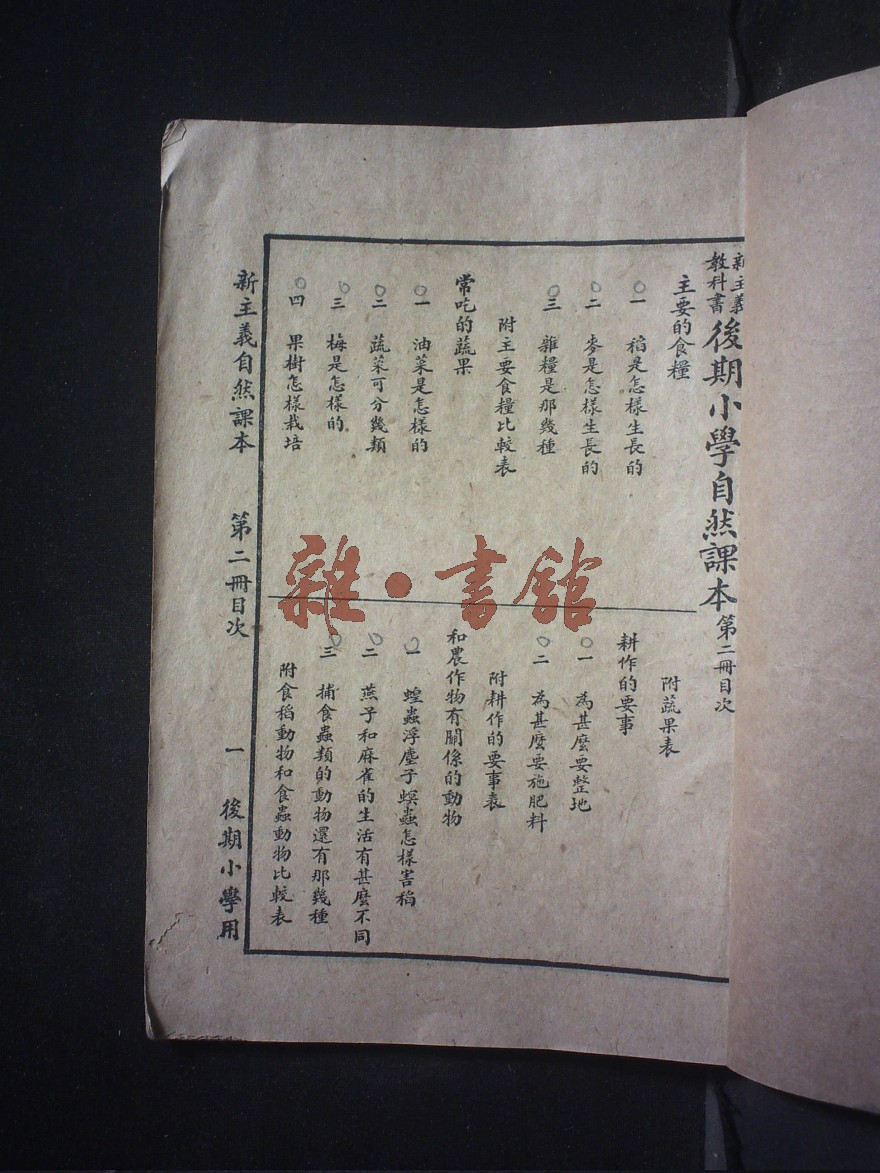 新主義
教科書
後期小學自然課本第二冊目次
主要的食糧
一 稻是怎樣生長的
二 麥是怎樣生長的
三 雜糧是那幾種
附主要食糧比較表
常吃的蔬果
一 油菜是怎樣的
二 蔬菜可分幾類
三 梅是怎樣的
四 果樹怎樣栽培
附蔬果表
耕作的要事
一 為甚麼要整地
二 為甚麼要施肥料
附耕作的要事表
和農作物有關係的動物
一 蝗蟲浮塵子螟蟲怎樣害稻
二 燕子和麻雀的生活有甚麼不同
三 捕食蟲類的動物還有那幾種
附食稻動物和食蟲動物比較表
新主義自然課本 第二冊目次 一 後期小學用
雜·書館